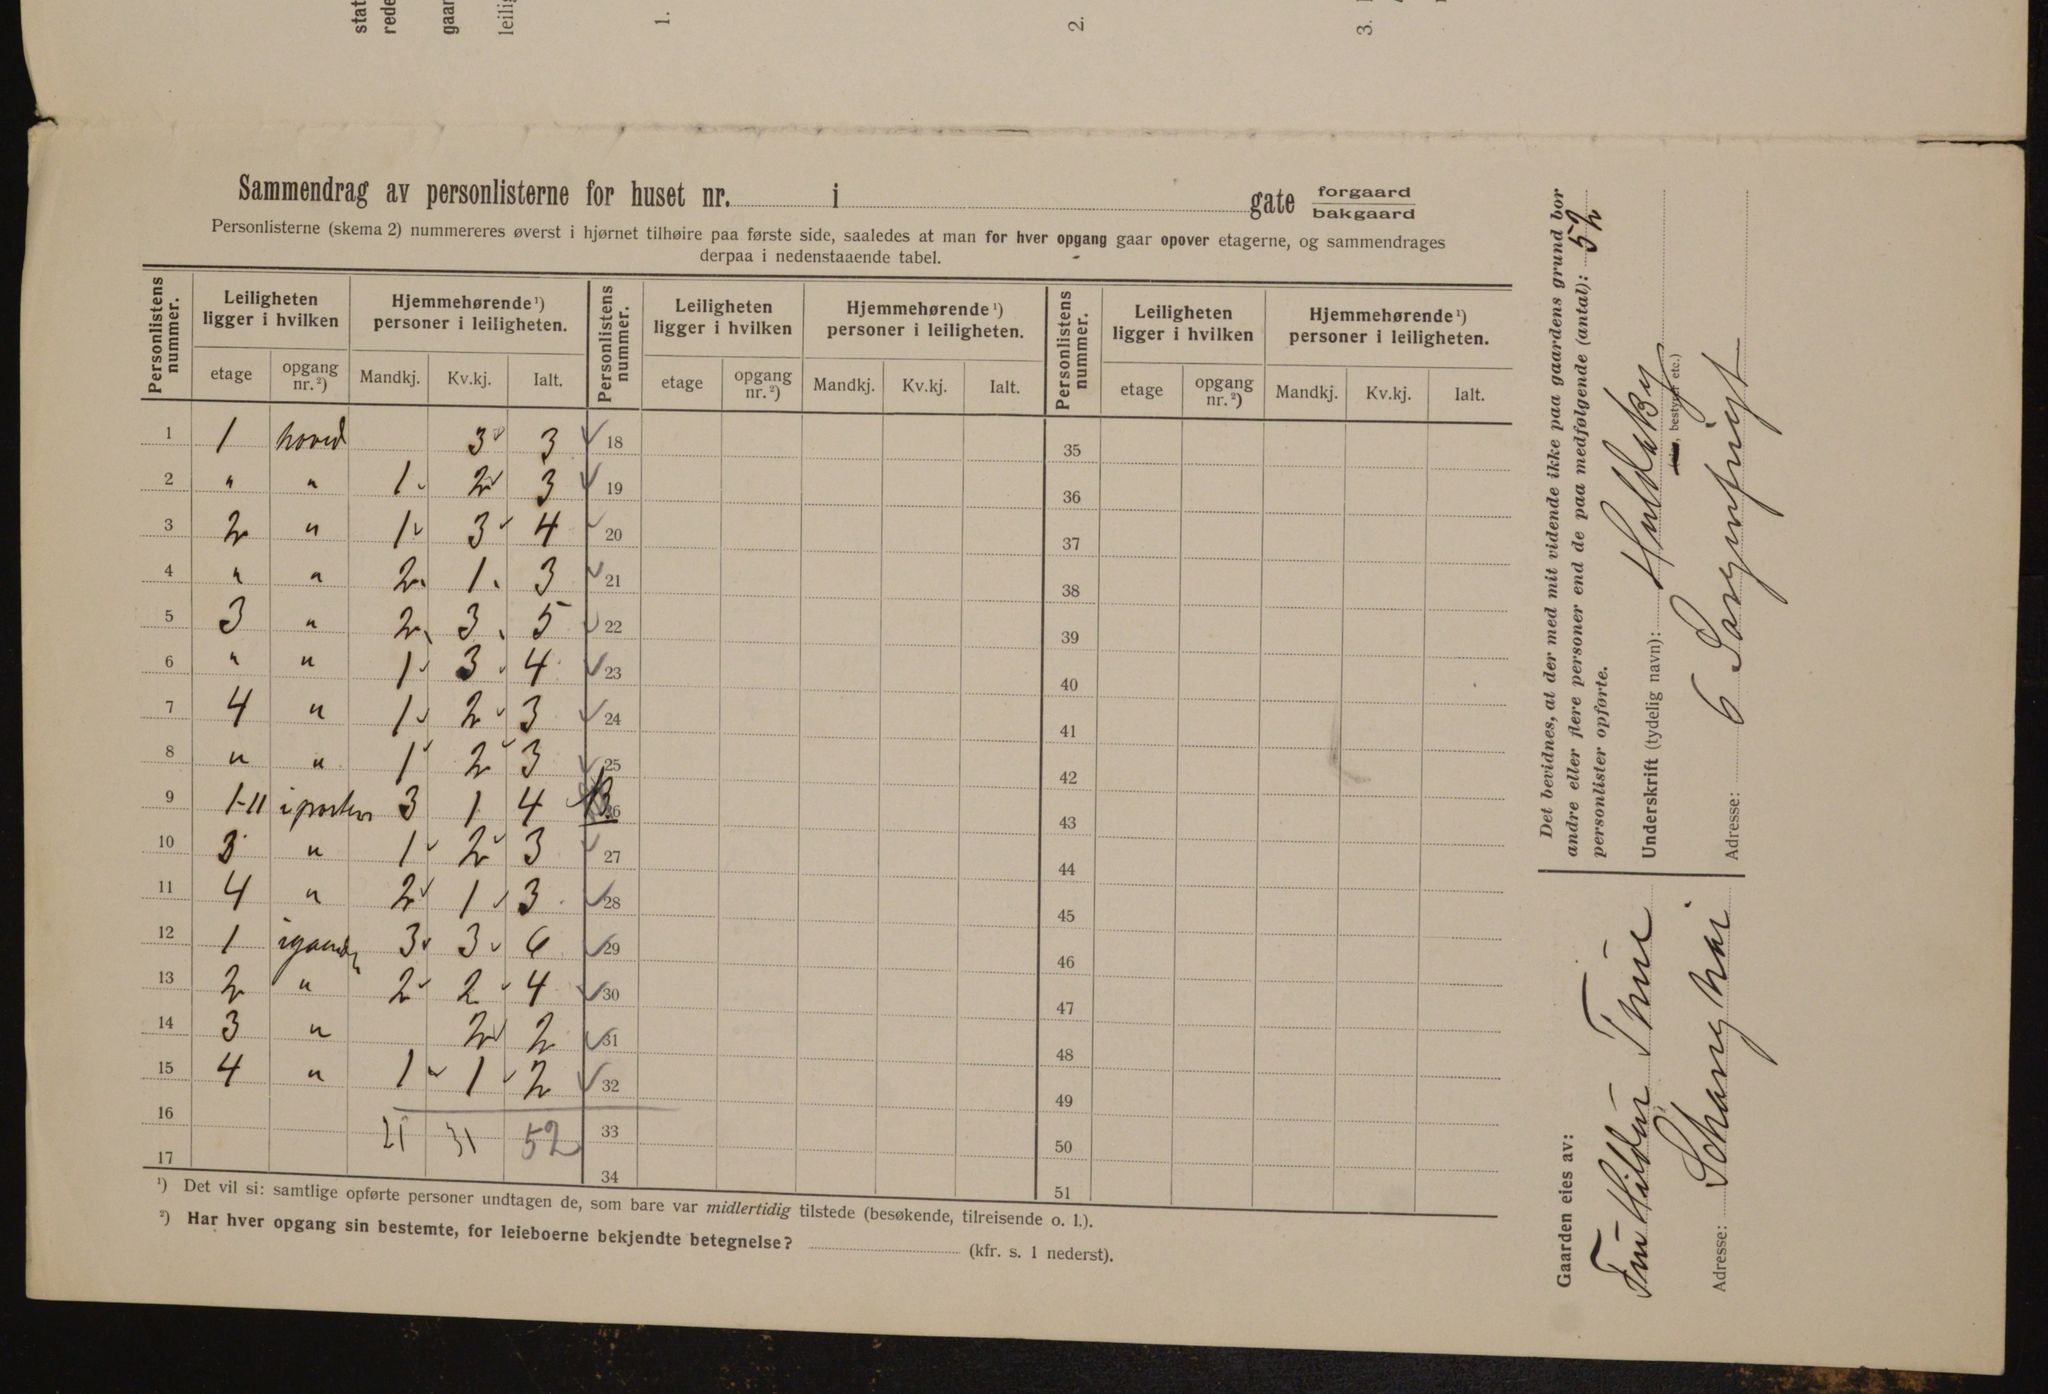 stat
rede
gaar
leilig
1.
2.
3.
Sammendrag av personlisterne for huset nr. i gate forgaard
bakgaard
Personlisterne (skema 2) nummereres øverst i hjørnet tilhøire paa første side, saaledes at man for hver opgang gaar opover etagerne, og sammendrages
derpaa i nedenstaaende tabel.
Personlistens nummer. Leiligheten ligger i hvilken Hjemmehørende¹) personer i leiligheten. Personlistens nummer. Leiligheten ligger i hvilken Hjemmehørende¹) personer i leiligheten. Personlistens nummer. Leiligheten ligger i hvilken Hjemmehørende¹) personer i leiligheten.
etage opgang nr.²) Mandkj. Kv.kj. Ialt. etage opgang nr.²) Mandkj. Kv.kj. Ialt. etage opgang nr.²) Mandkj. Kv.kj. Ialt.
1 1 hoved 3 3 18 35
2 " " 1 2 3 19 36
3 2 " 1 3 4 20 37
4 " " 2 1 3 21 38
5 3 " 2 3 5 22 39
6 " " 1 3 4 23 40
7 4 " 1 2 3 24 41
8 " " 1 2 3 25 42
9 1-11 i porten 3 1 4 26 43
10 3 " 1 2 3 27 44
11 4 " 2 1 3 28 45
12 1 i gaarden 3 3 6 29 46
13 2 " 2 2 4 30 47
14 3 " 2 2 31 48
15 4 " 1 1 2 32 49
16 21 31 52 33 50
17 34 51
¹) Det vil si: samtlige opførte personer undtagen de, som bare var midlertidig tilstede (besøkende, tilreisende o. l.).
²) Har hver opgang sin bestemte, for leieboerne bekjendte betegnelse? (kfr. s. 1 nederst).
Det bevidnes, at der med mit vidende ikke paa gaardens grund bor
andre eller flere personer end de paa medfølgende (antal): 52
personlister opførte.
Underskrift (tydelig navn):
(eier, bestyrer etc.)
Adresse: 6
Gaarden eies av:
Thiis
Adresse: Schanghai